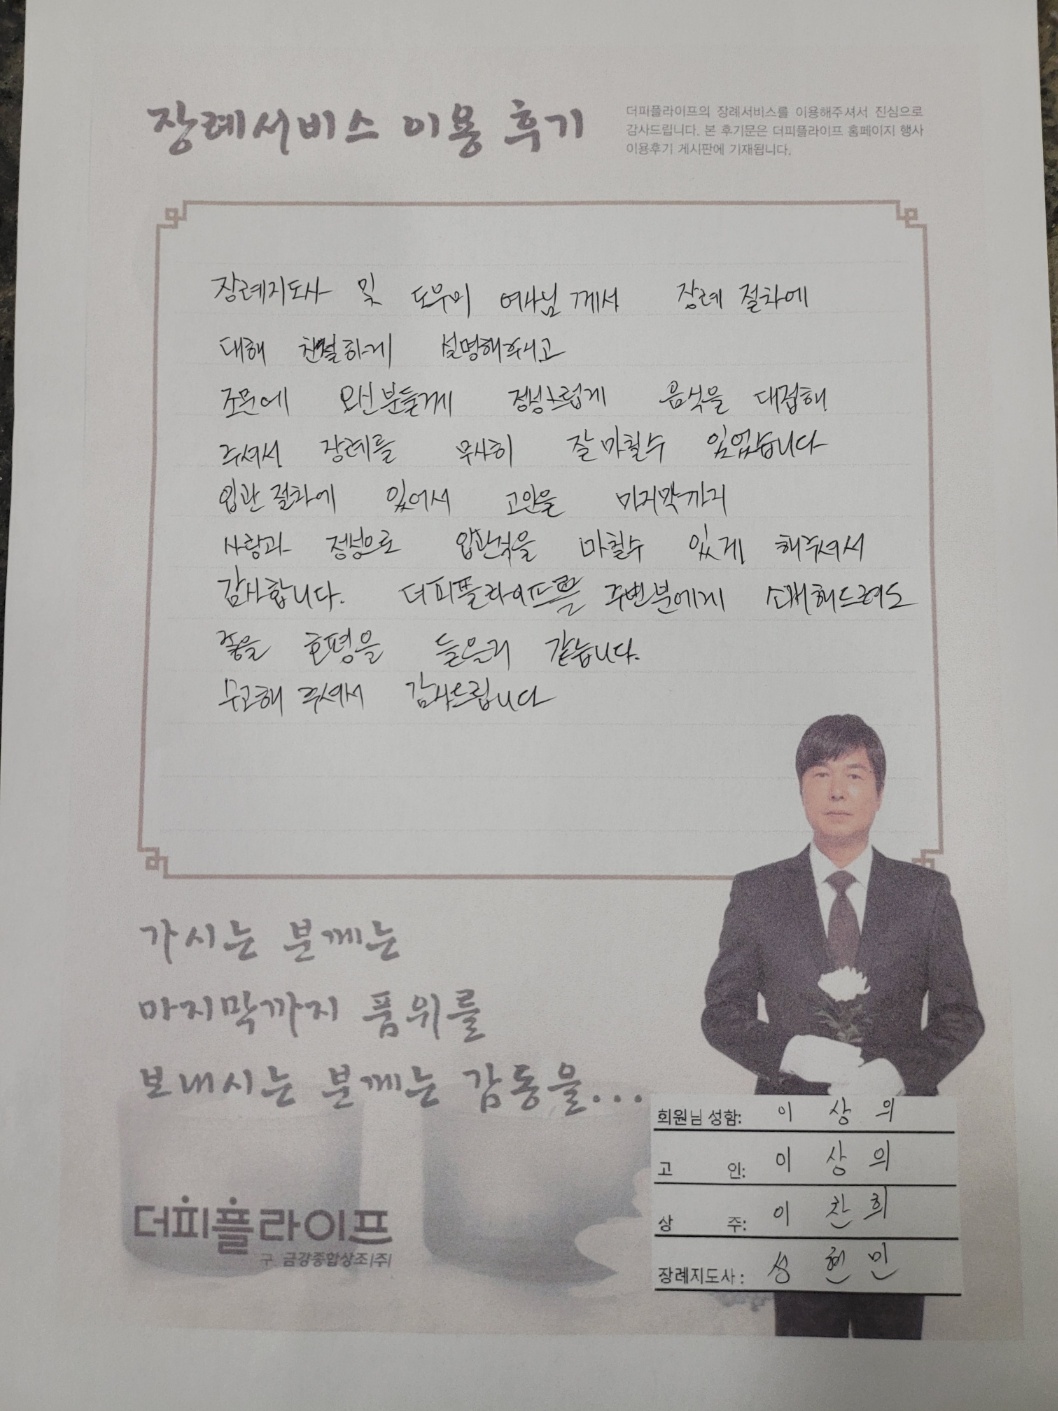 장례서비스 이용 후기
더피플라이프의 장례서비스를 이용해주셔서 진심으로
감사드립니다. 본 후기문은 더피플라이프 홈페이지 행사
이용후기 게시판에 기재됩니다.
장례지도사 및 도우미 여사님 께서 장례 절차에
대해 친절하게 설명해주시고
조문에 오신분들께 정성스럽게 음식을 대접해
주셔서 장례를 무사히 잘 마칠수 있었습니다
입관 절차에 있어서 고인을 마지막까지
사랑과 정성으로 입관식을 마칠수 있게 해주셔서
감사합니다. 더피플라이프를 주변분에게 소개해드려도
좋을 호평을 들을거 같습니다.
수고해 주셔서 감사드립니다
가시는 분께는
마지막까지 품위를
보내시는 분께는 감동을...
회원님 성함: 이 상 의
고 인: 이 상 의
상 주: 이 찬 희
장례지도사: 성 현 민
더피플라이프
구. 금강종합상조(주)